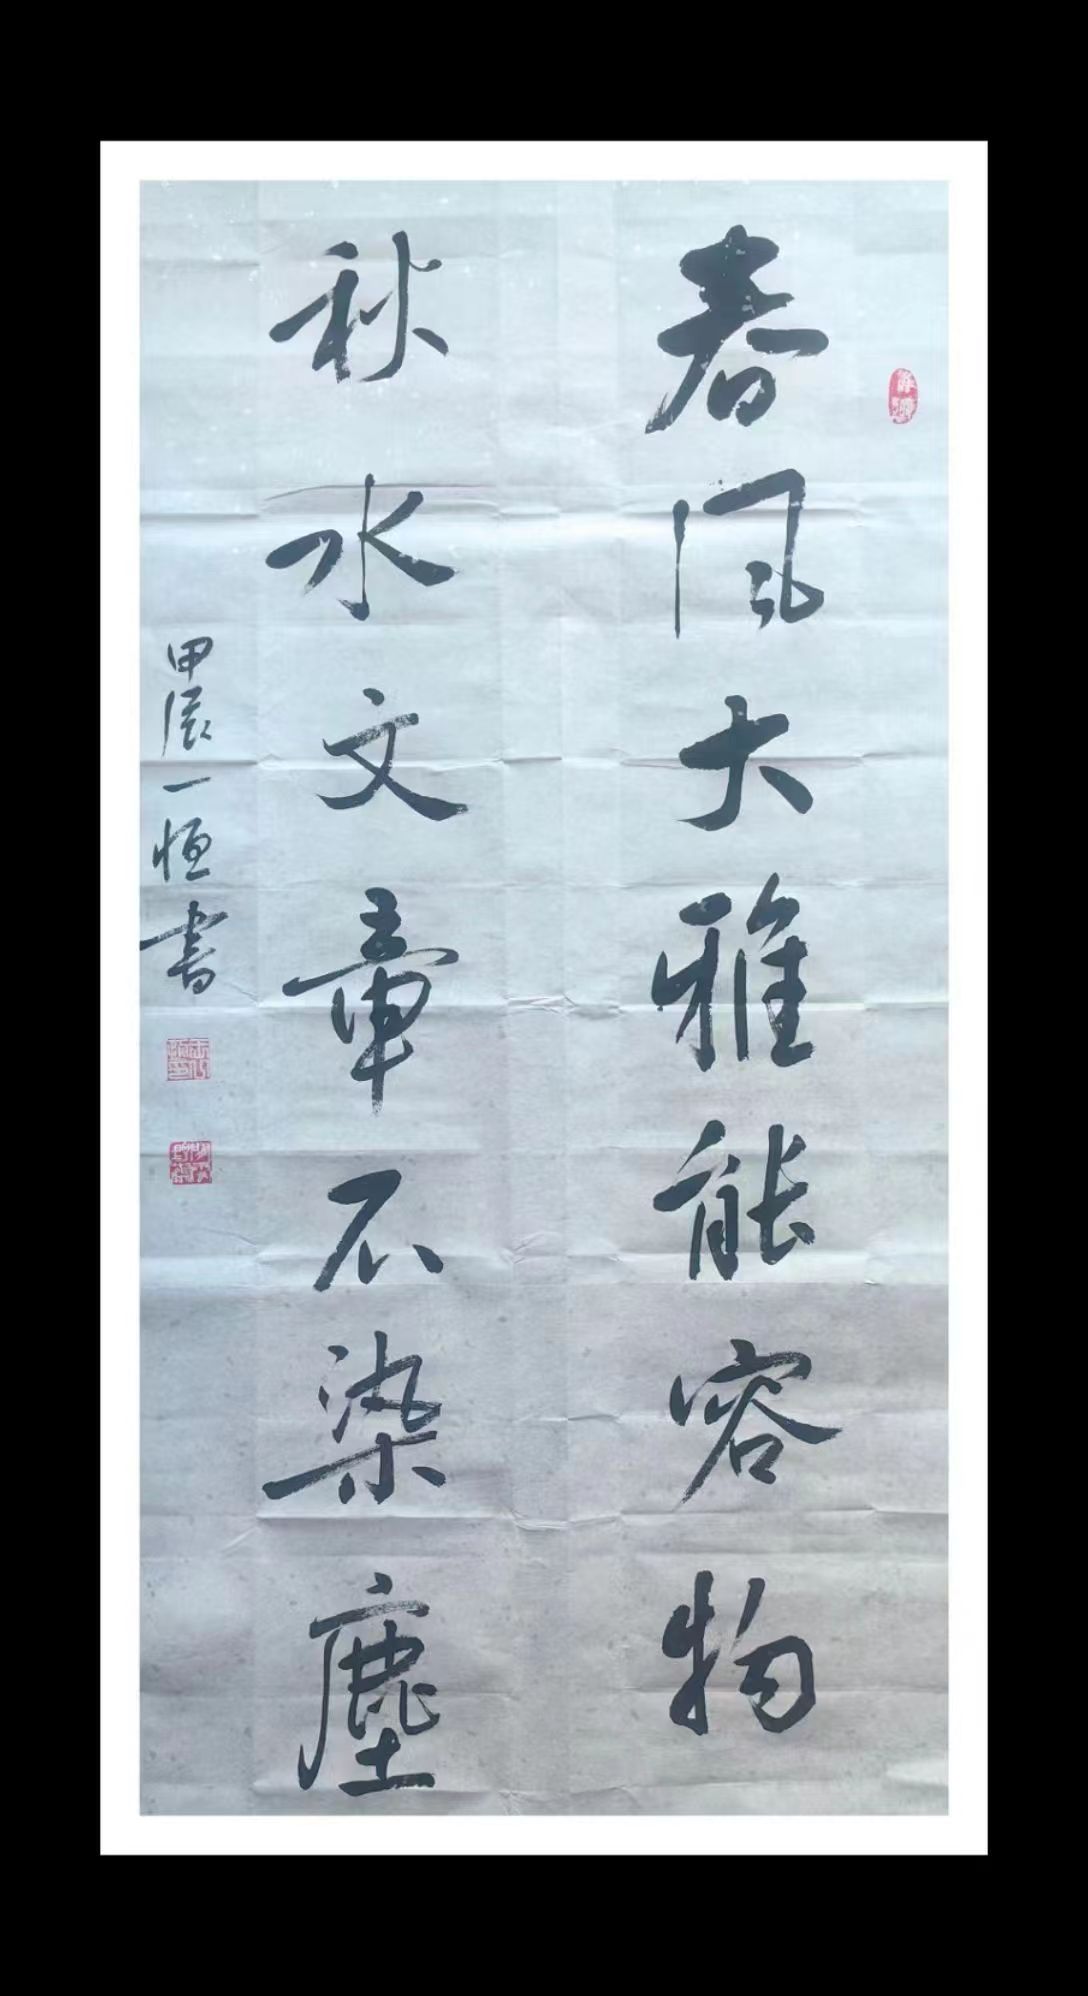 春风大雅能容物
秋水文章不染塵
甲辰一恒書